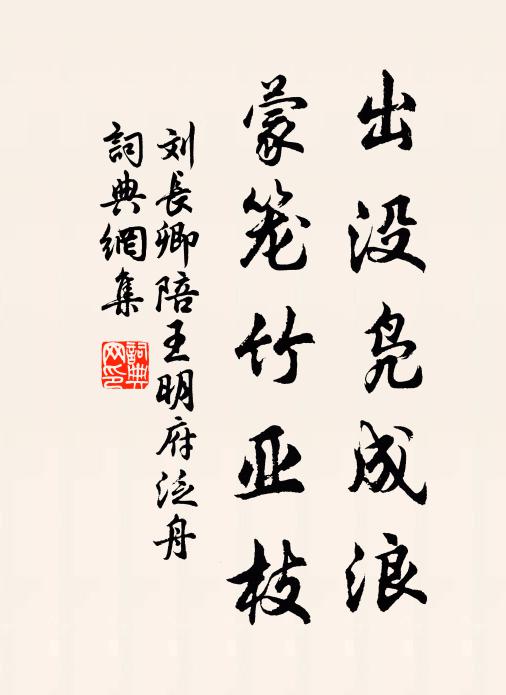 出没凫成浪
蒙笼竹亚枝
刘长卿陪王明府泛舟
詞典網集
詞典网印